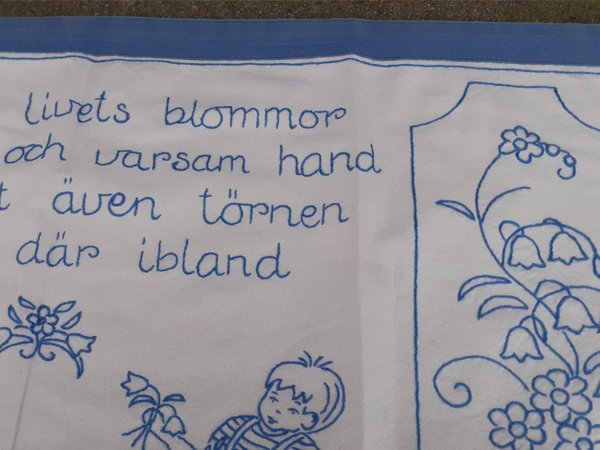 livets blommor
och varsam hand
t även törnen
där ibland